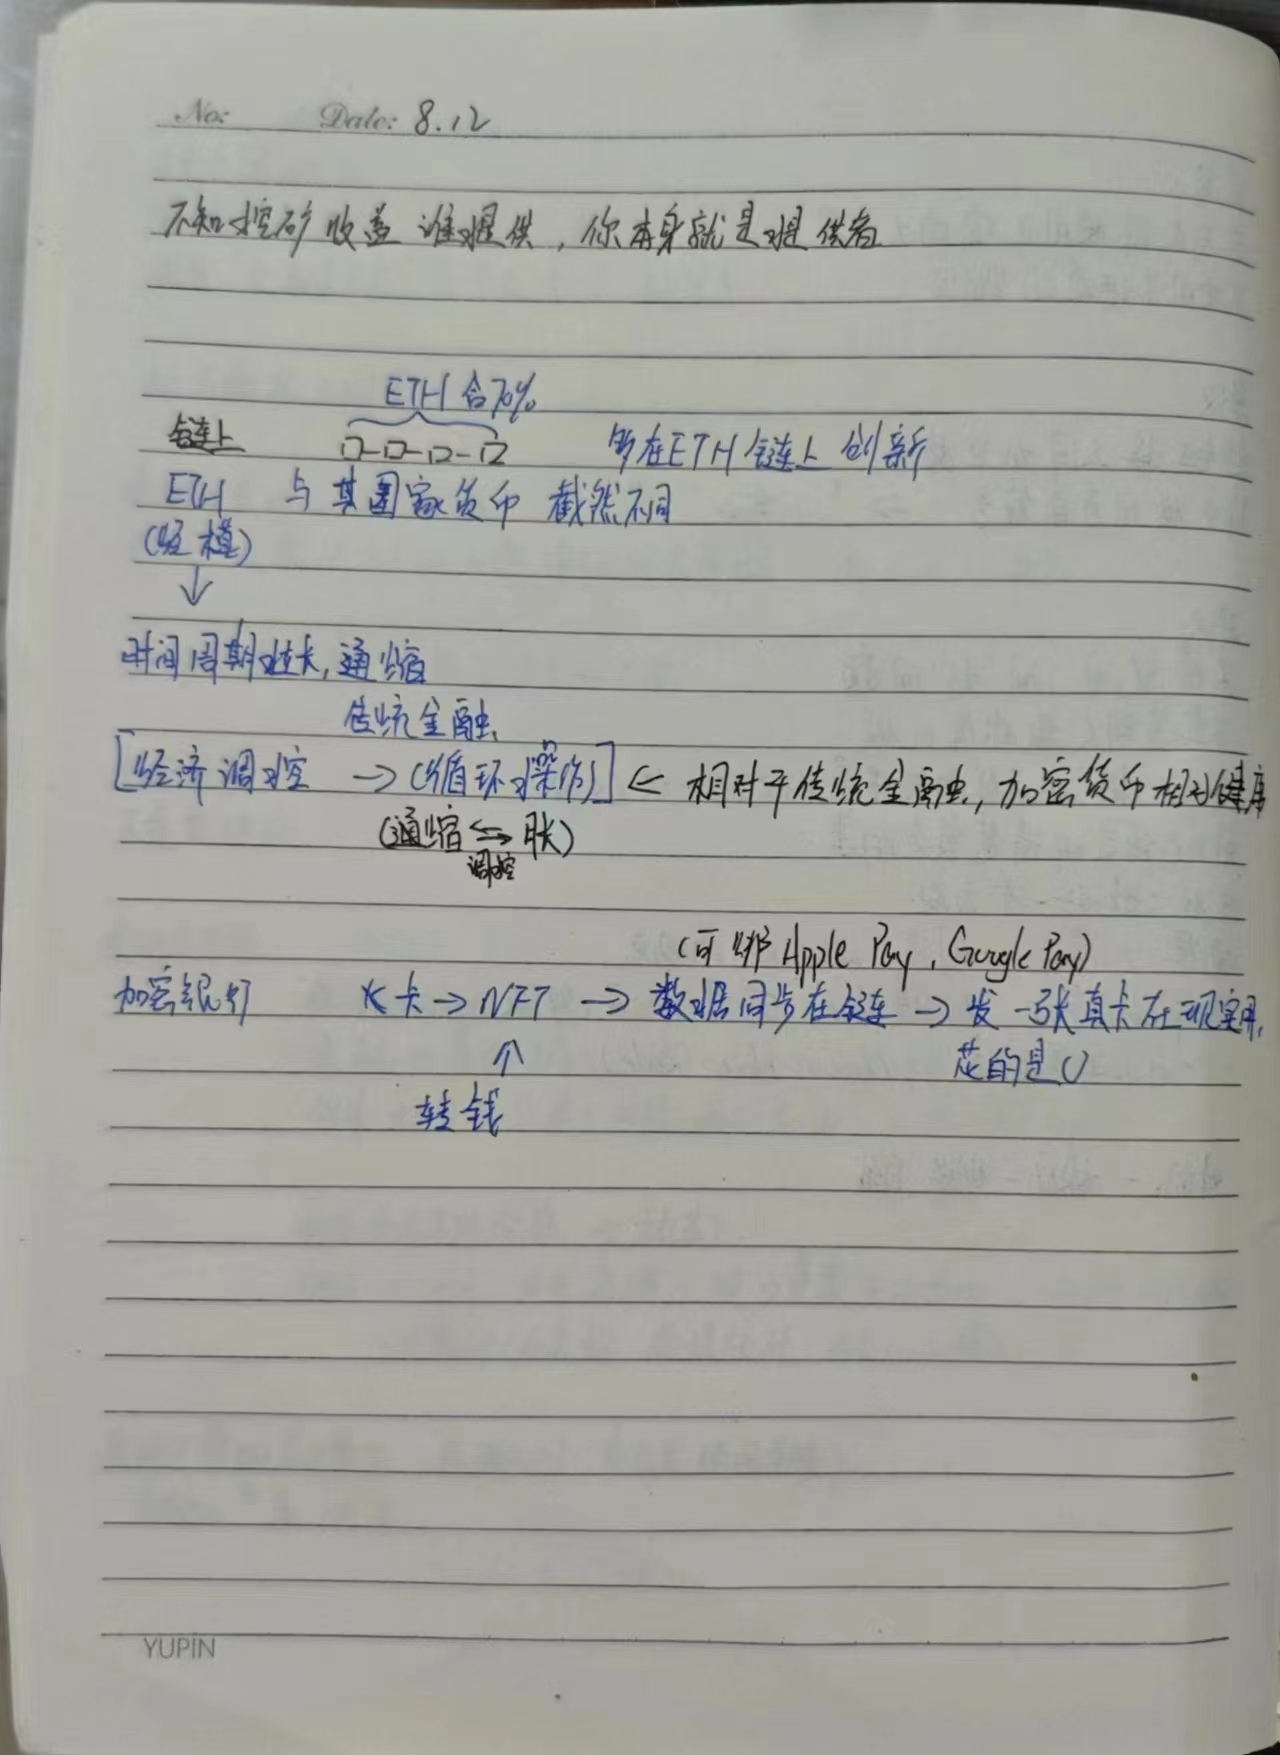 No: Date: 8.12
不知挖矿收益谁提供，你本身就是提供者
ETH 合70%
链上 口-口-口-口 都在ETH链上创新
ETH 与其国家货币 截然不同
(经模)
↓
时间周期越长，通缩
传统金融
[经济调控 → (循环操作)] ← 相对于传统金融，加密货币相对健康
(通缩 ⇆ 胀)
调控
(可绑 Apple Pay, Google Pay)
加密银行 卡 → NFT → 数据同步在链 → 发一张真卡在现实用，
↑ 花的是U
转钱
YUPIN